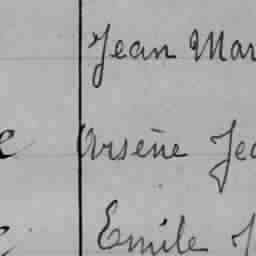 Jean Mar
Arsène Jea
Emile J